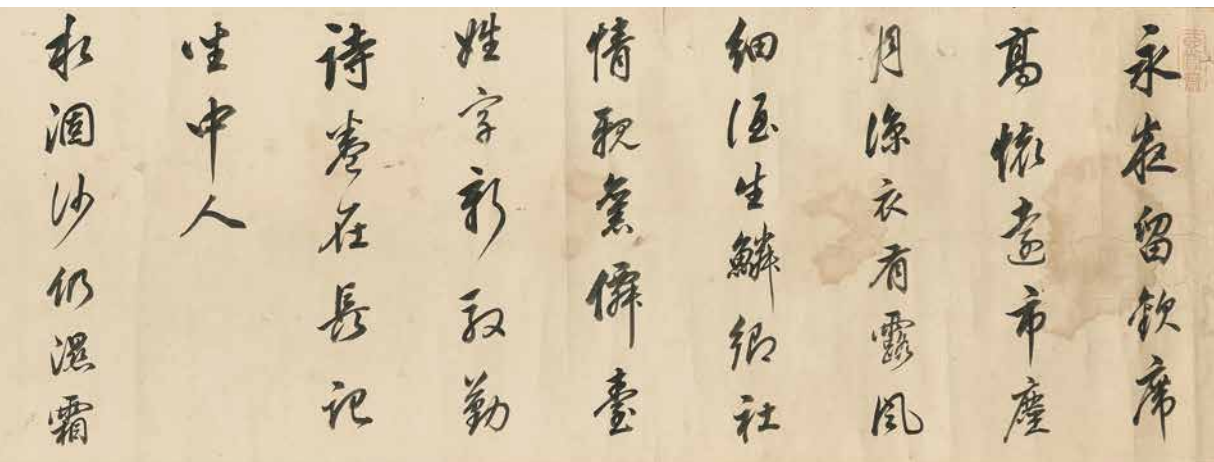 永夜留飲席
高懷遠市塵
月涼衣有露風
細酒生鱗鄉社
情親黨臺
姓字新殷勤
詩卷在長記
坐中人
水涸沙仍濕霜